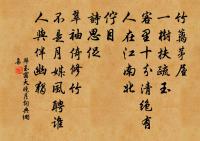 竹籬茅屋
一樹扶疏玉
客里十分清絕有
人在江南北
佇目
詩思促
翠袖倚修竹
不是月媒風聘誰
人與伴幽獨